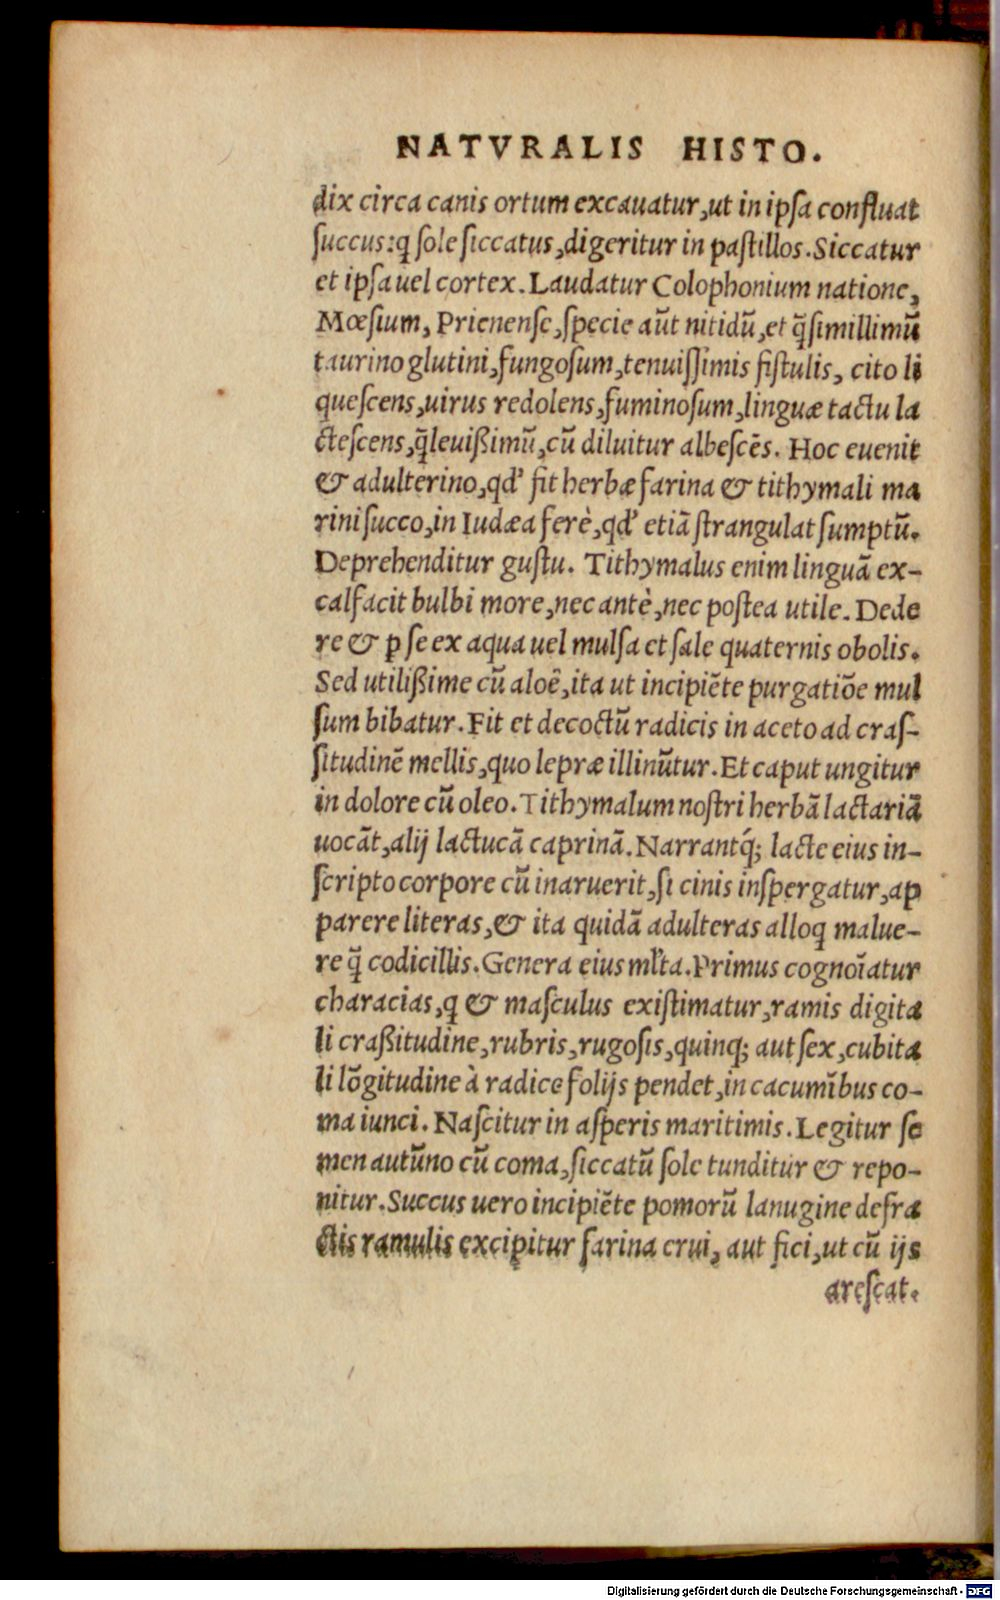 NATVRALIS HISTO.
dix circa canis ortum excauatur, ut in ipſa confluat
ſuccus: q̃ ſole ſiccatus, digeritur in paſtillos. Siccatur
et ipſa uel cortex. Laudatur Colophonium natione,
Mœſium, Prienenſe, ſpecie aũt nitidũ, et q̃ſimillimũ
taurino glutini, fungoſum, tenuiſſimis fiſtulis, cito li
queſcens, uirus redolens, fuminoſum, linguæ tactu la
cteſcens, q̃leuißimũ, cũ diluitur albeſcẽs. Hoc euenit
& adulterino, qd' fit herbæ farina & tithymali ma
rini ſucco, in Iudæa ferè, qd' etiã ſtrangulat ſumptũ.
Deprehenditur guſtu. Tithymalus enim linguã ex-
calfacit bulbi more, nec antè, nec poſtea utile. Dede
re & p̱ ſe ex aqua uel mulſa et ſale quaternis obolis.
Sed utilißime cũ aloẽ, ita ut incipiẽte purgatiõe mul
ſum bibatur. Fit et decoctũ radicis in aceto ad craſ-
ſitudinẽ mellis, quo lepræ illinũtur. Et caput ungitur
in dolore cũ oleo. Tithymalum noſtri herbã lactariã
uocãt, alij lactucã caprinã. Narrantq́; lacte eius in-
ſcripto corpore cũ inaruerit, ſi cinis inſpergatur, ap
parere literas, & ita quidã adulteras alloq malue-
re q̃ codicillis. Genera eius ml'ta. Primus cognoĩatur
characias, q & maſculus exiſtimatur, ramis digita
li craßitudine, rubris, rugoſis, quinq; aut ſex, cubita
li lõgitudine à radice folijs pendet, in cacumĩbus co-
ma iunci. Naſcitur in aſperis maritimis. Legitur ſe
men autũno cũ coma, ſiccatũ ſole tunditur & repo-
nitur. Succus uero incipiẽte pomorũ lanugine defra
ctis ramulis excipitur farina erui, aut fici, ut cũ ijs
areſcat.
Digitalisierung gefördert durch die Deutsche Forschungsgemeinschaft - DFG